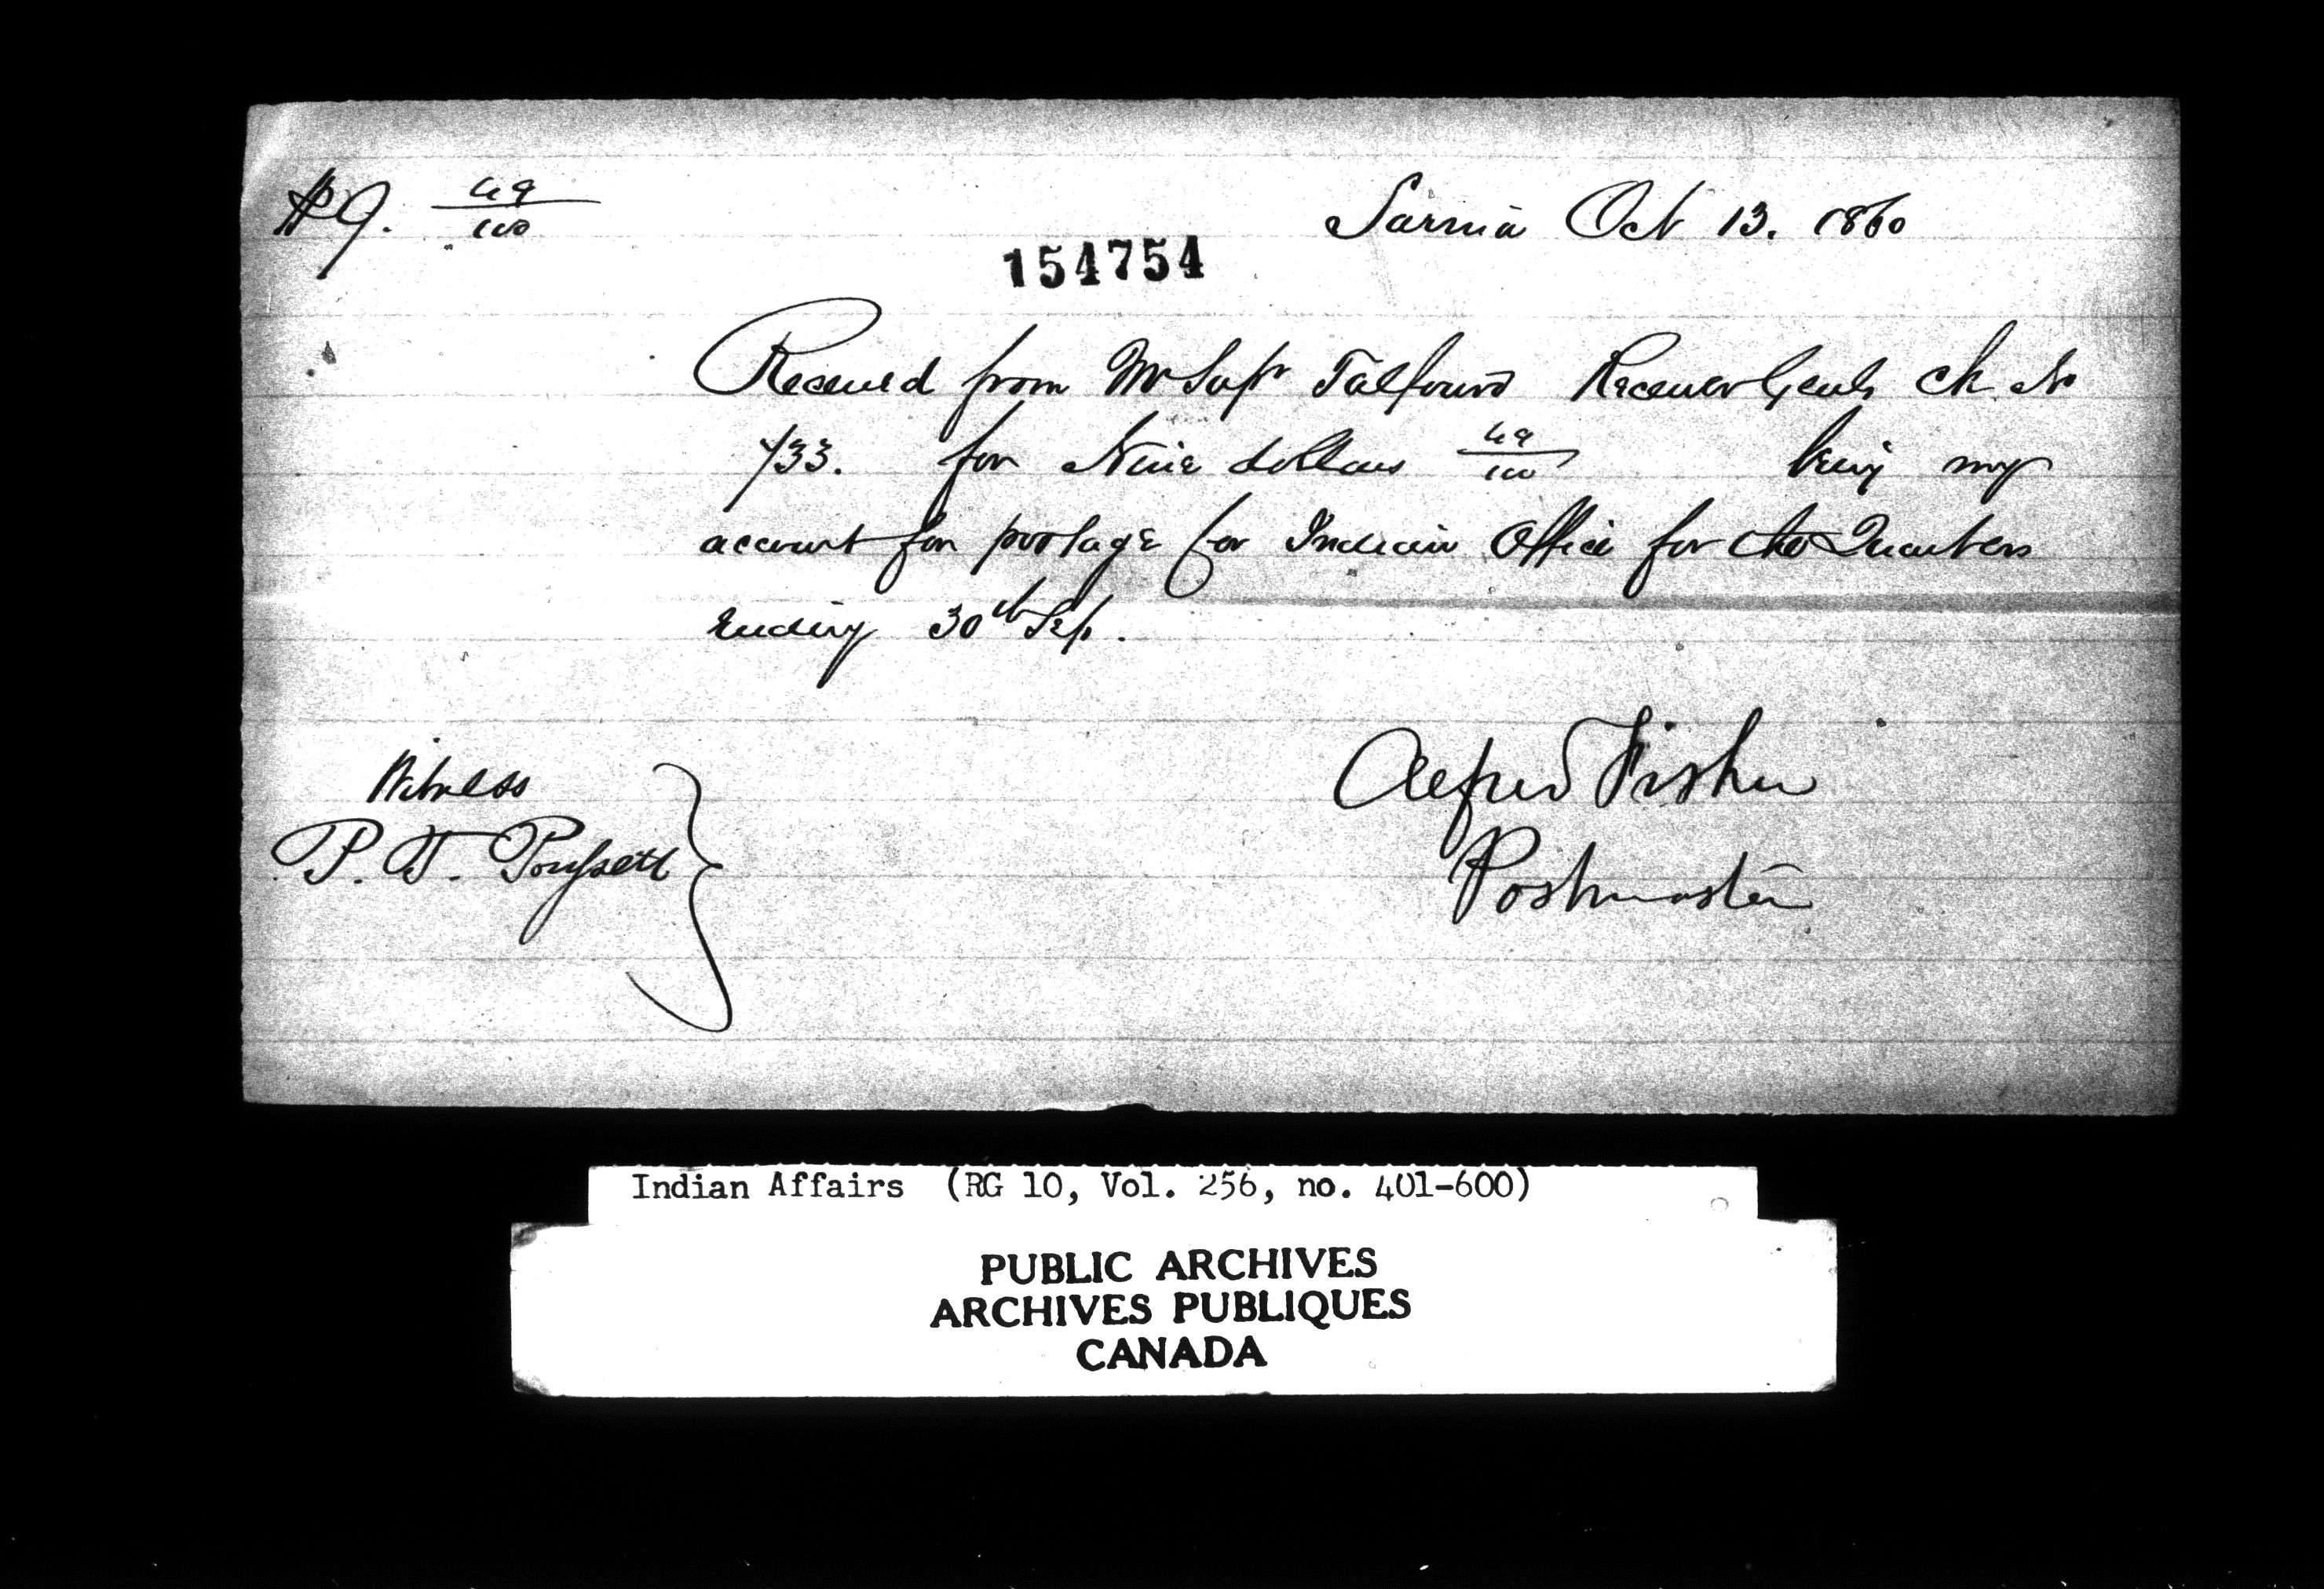 $9. 49/100
Sarnia Oct 13. 1860
154754
Received from Mr Supt Talfourd Receiver Genls Ck No
733. for Nine dollars 49/100 being my
account for postage for Indian Office for the Quarters
Ending 30th Sep.
Alfred Fisher
Postmaster
Witness
P. T. Poussett
Indian Affairs (RG 10, Vol. 256, no. 401-600)
PUBLIC ARCHIVES
ARCHIVES PUBLIQUES
CANADA